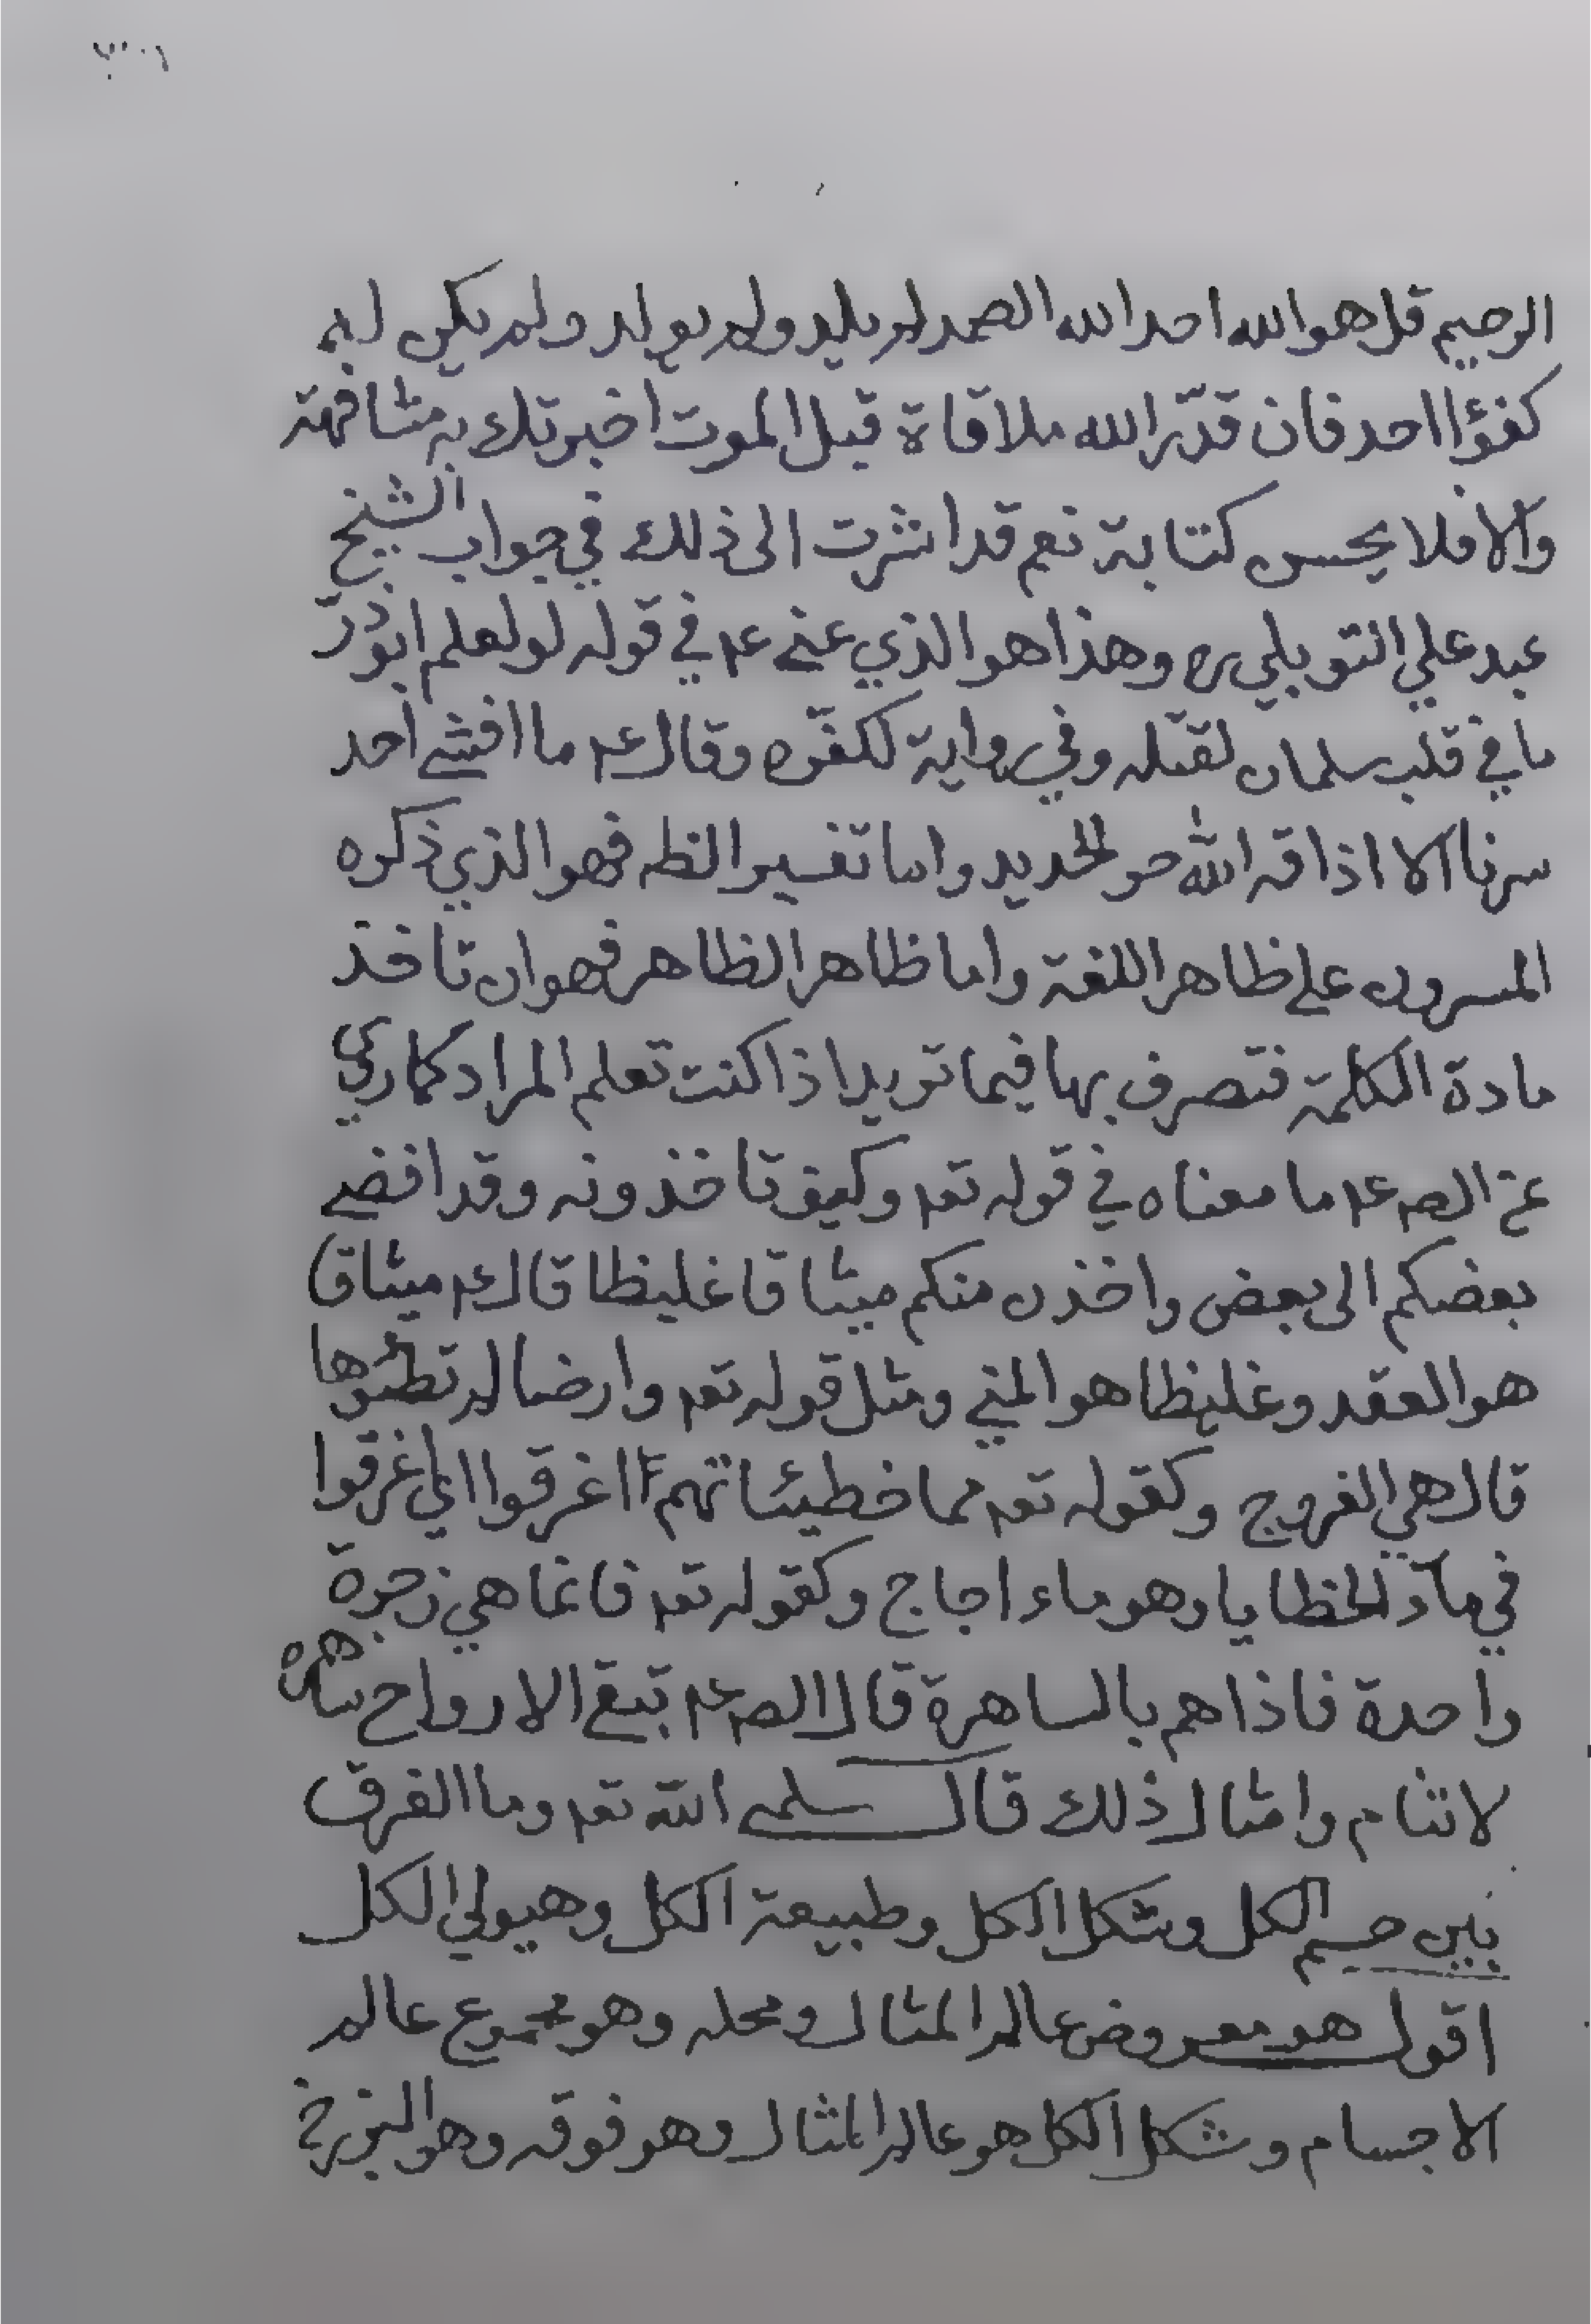 الرحيم قل هو الله احد الله الصمد لم يلد ولم يولد ولم يكن له
كفؤا احد فان قدّر الله ملاقاة قبل الموت اخبرتك به مشافهة
والا فلا يحسن كتابة نعم قد اشرت الى ذلك في جواب الشيخ
عبد علي التوبلي ره وهذا هو الذي عنى ع۴ في قوله لو لعلم ابوذر
ما في قلب سلمان لقتله وفي رواية لكفّره وقال ع۴ ما افشى احد
سرنا الا اذاقه الله حر الحديد واما تفسير الظه فهو الذي ذكره
المسرون على ظاهر اللغة واما ظاهر الظاهر فهو ان تاخذ
مادة الكلمة فتصرف بها فيما تريد اذا كنت تعلم المراد كما روي
عن الصه ع۴ ما معناه في قوله تعه وكيف تاخذونه وقد افضى
بعضكم الى بعض واخذن منكم ميثاقا غليظا قال ع۴ ميثاقا
هو العقد وغليظا هو المني ومثل قوله تعه وارضا لم تطئوها
قال هي الفروج وكقوله تعه مما خطيئاتهم اغرقوا اي اغرقوا
في مآء الخطايا وهو ماء اجاج وكقوله تعه فانما هي زجرة
واحدة فاذا هم بالساهرة قال الصه ع۴ تبقى الارواح ساهرة
لا تنام وامثال ذلك قال سلمه الله تعه وما الفرق
بين جسم الكل وشكل الكل وطبيعة الكل وهيولي الكل
اقول هو معروض عالم المثال ومحله وهو مجموع عالم
الاجسام وشكل الكل هو عالم المثال وهو فوقه وهو البرزخ